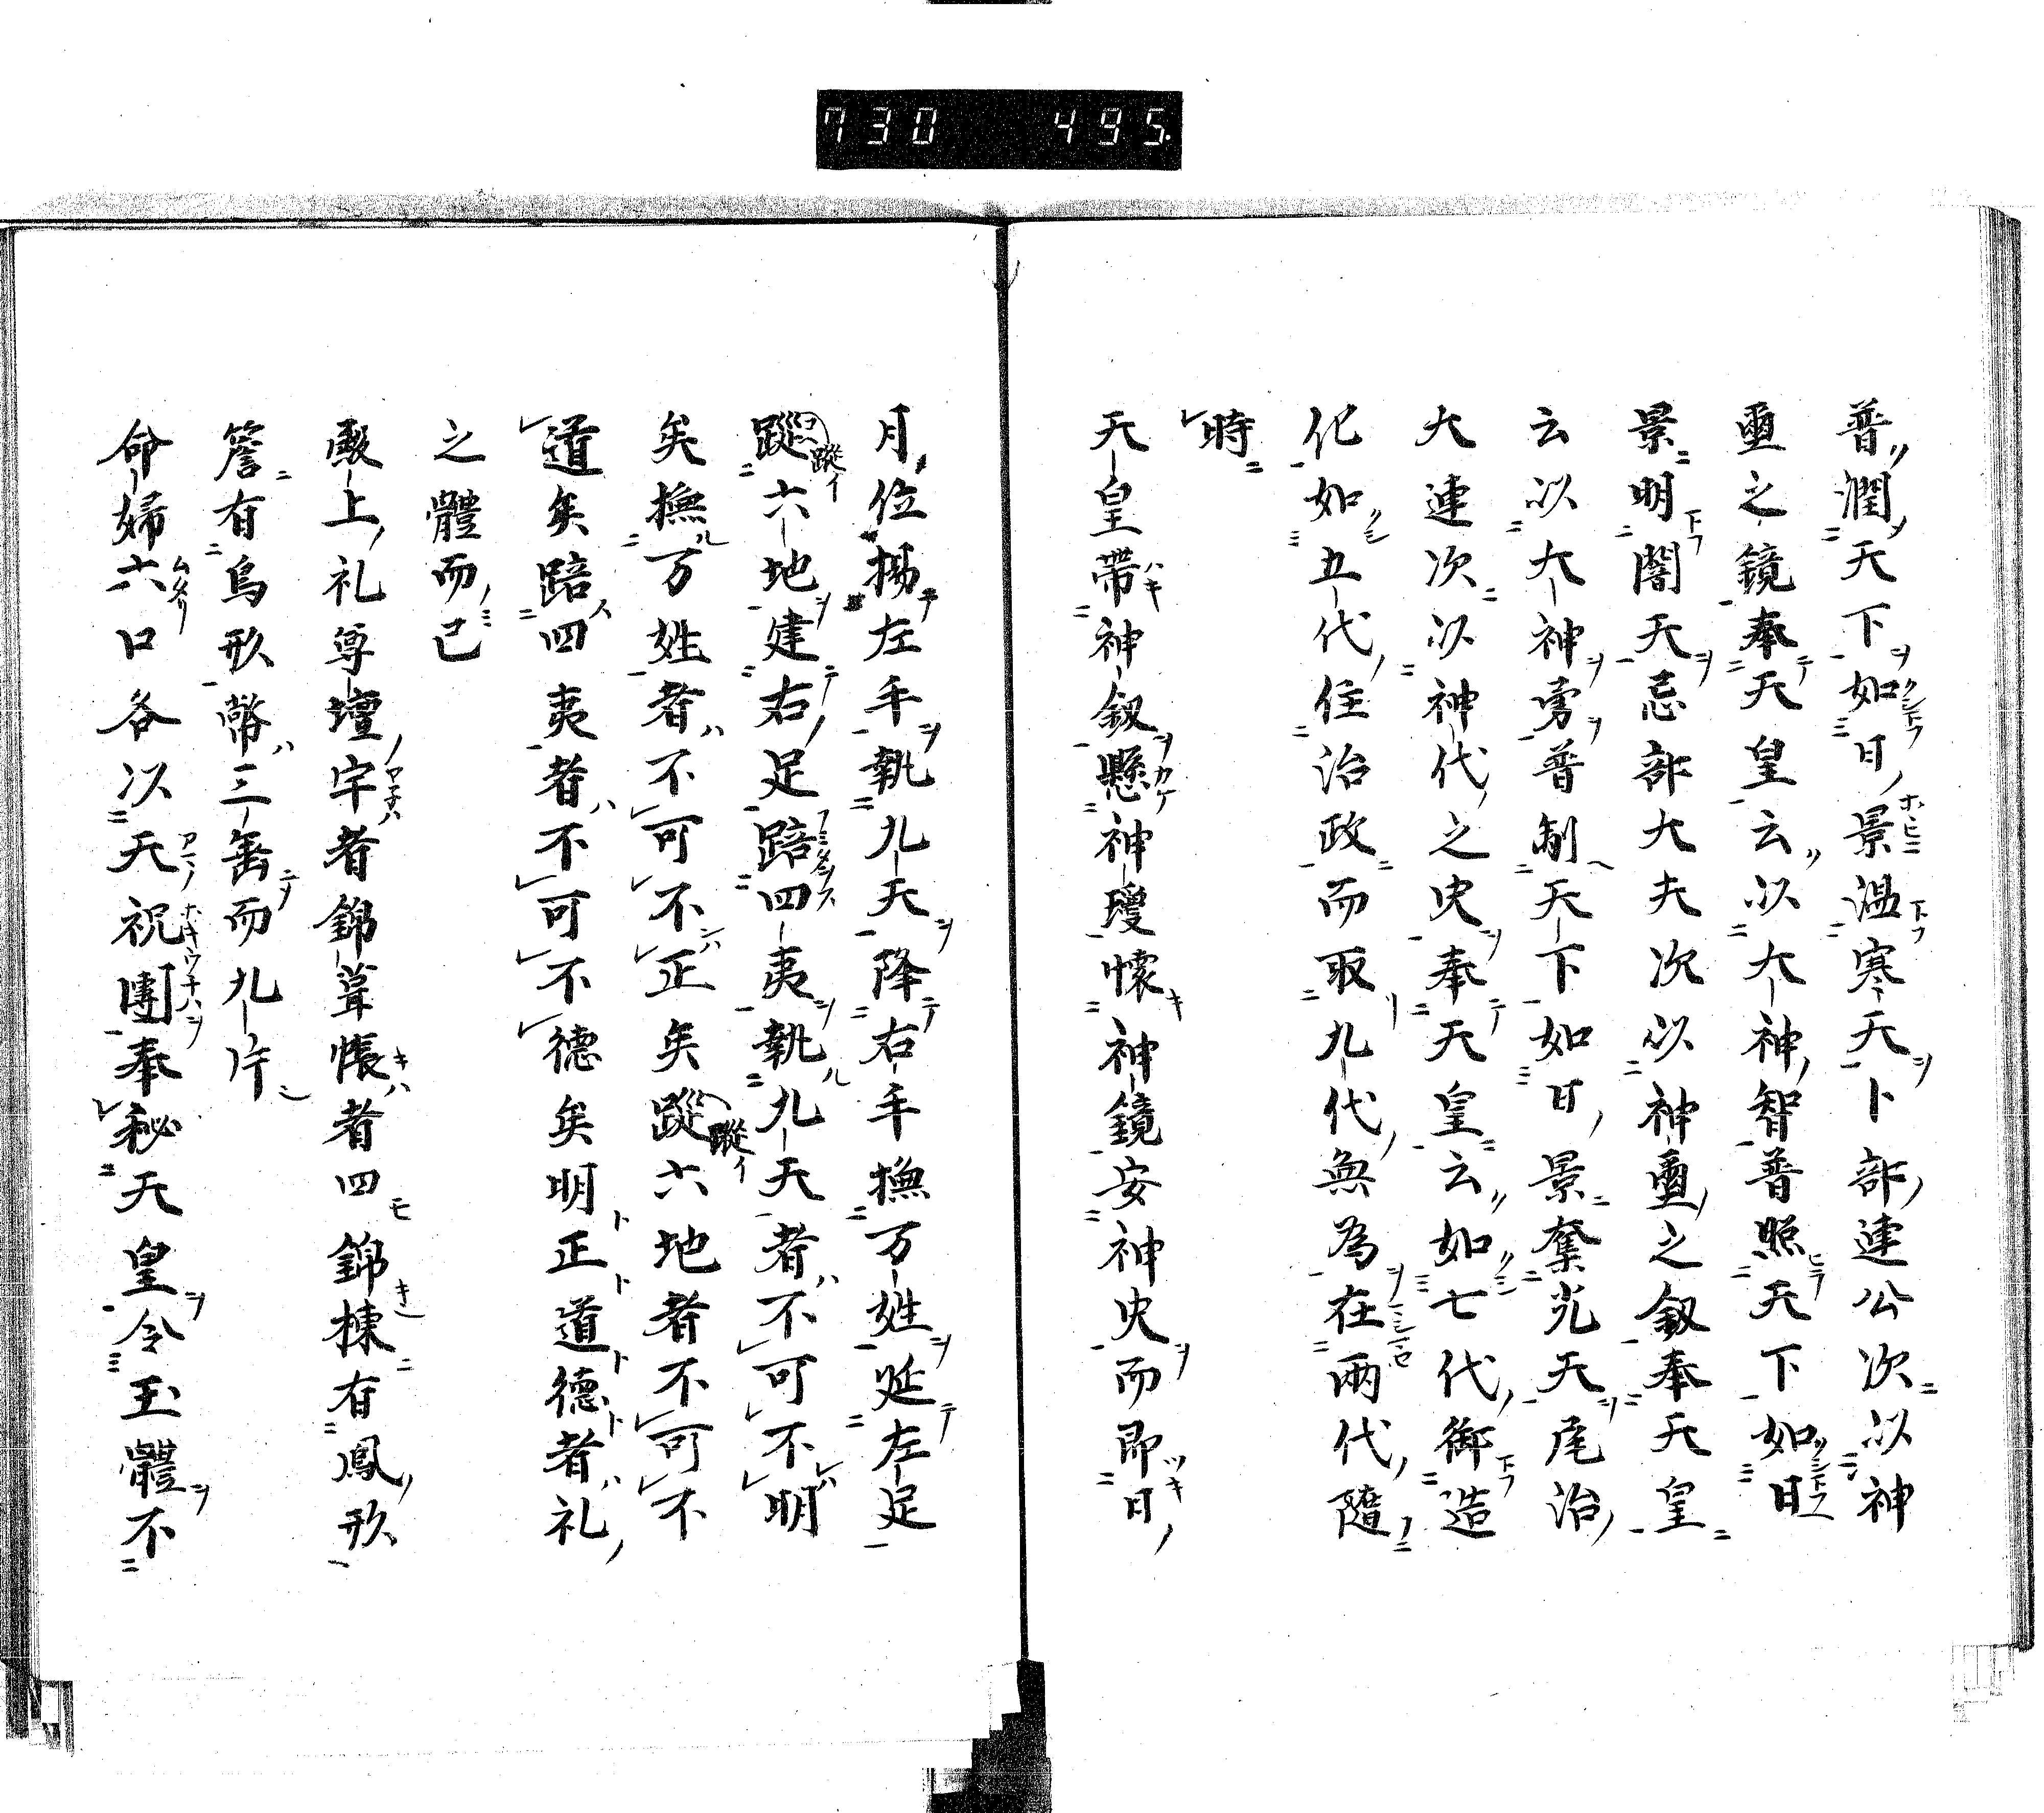 730 495.
普潤天下如日景温寒天卜部連公次以神
璽之鏡奉天皇云以大神智普照天下如日
景明闇天忌部大夫次以神璽之釼奉天皇
云以大神雱普制天下如日景奪光天尾治
大連次以神代之史奉天皇云如七代御造
化如五代住治政而取九代無為在兩代隨
時
天皇帶神釼懸神璦懷神鏡安神史而即日
月位揚左手執九天降右手撫万姓延左足
蹤六地建右足踣四夷執九天者不可不明
矣撫万姓者不可不正矣蹤六地者不可不
道矣踣四夷者不可不德矣明正道德者礼
之體而已
殿上礼尊壇宇者錦葺帳者四錦棟有鳳形
簷有烏形幣三缶而九片
命婦六口各以天祝團奉秘天皇令玉體不